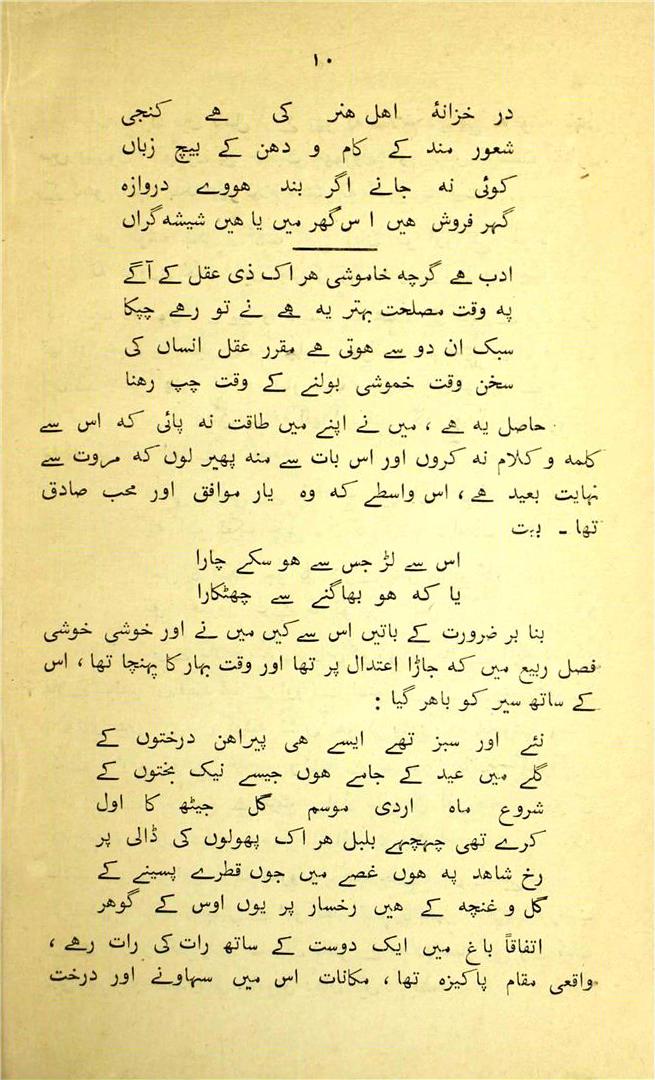 ۱۰
در خزانۂ اهل هنر کی هے کنجی
شعور مند کے کام و دهن کے بیچ زباں
کوئی نه جانے اگر بند هووے دروازه
گہر فروش هیں ا س گھر میں یا هیں شیشه گراں
ادب هے گرچه خاموشی هر اک ذی عقل کے آگے
په وقت مصلحت بہتر یه هے نے تو رهے چپکا
سبک ان دو سے هوتی هے مقرر عقل انساں کی
سخن وقت خموشی بولنے کے وقت چپ رهنا
حاصل یه هے ، میں نے اپنے میں طاقت نه پائی که اس سے
کلمه و کلام نه کروں اور اس بات سے منه پھیر لوں که مروت سے
نہایت بعید هے ، اس واسطے که وه یار موافق اور محب صادق
تھا ـ بیت
اس سے لڑ جس سے هو سکے چارا
یا که هو بھاگنے سے چھٹکارا
بنا بر ضرورت کے باتیں اس سے کیں میں نے اور خوشی خوشی
فصل ربیع میں که جاڑا اعتدال پر تھا اور وقت بہار کا پہنچا تھا ، اس
کے ساتھ سیر کو باهر گیا :
نئے اور سبز تھے ایسے هی پیراهن درختوں کے
گلے میں عید کے جامے هوں جیسے نیک بختوں کے
شروع ماه اردی موسم گل جیٹھ کا اول
کرے تھی چہچہے بلبل هر اک پھولوں کی ڈالی پر
رخ شاهد په هوں غصے میں جوں قطرے پسینے کے
گل و غنچه کے هیں رخسار پر یوں اوس کے گوهر
اتفاقاً باغ میں ایک دوست کے ساتھ رات کی رات رهے ،
واقعی مقام پاکیزه تھا ، مکانات اس میں سہاونے اور درخت